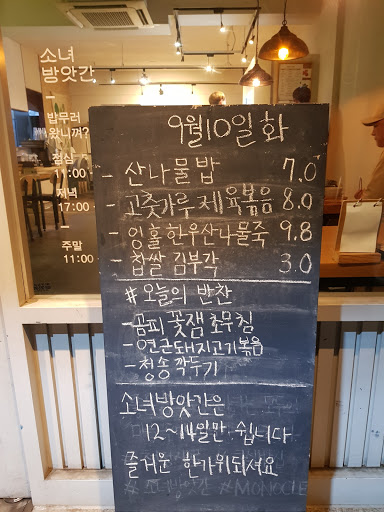 소녀
방앗간
밥무러
왔니껴?
점심
11:00 -
저녁
17:00 -
주말
11:00 -
9월10일화
- 산나물밥 7.0
- 고춧가루제육볶음 8.0
- 잉홀한우산나물죽 9.8
- 찹쌀 김부각 3.0
# 오늘의 반찬
-곰피꽃잼초무침
-연근돼지고기볶음
-청송깍두기
소녀방앗간은
12~14일만 쉽니다
즐거운 한가위되셔요
#소녀방앗간 #MONOCLE